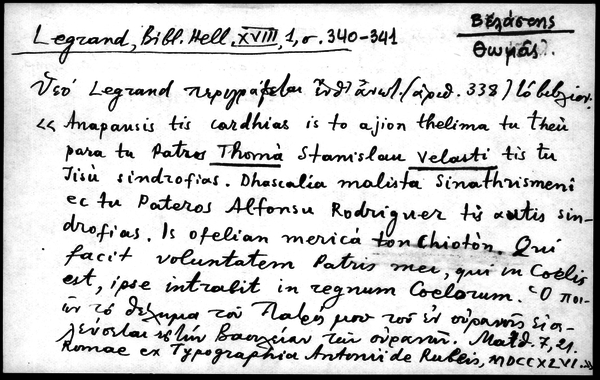 Βελάστης
Θωμᾶς.
Legrand, Bibl. Hell. XVIII, 1, σ. 340-341
Ὑπό Legrand περιγράφεται ἔνθ' ἀνωτ. (ἀριθ. 338) τό βιβλίον.
«Anapausis tis cardhias is to ajion thelima tu Theù
para tu Patros Thomà Stanislau Velasti tis tu
Jisù sindrofias. Dhascalia malista sinathrismeni
ec tu Pateros Alfonsu Rodriguer tis autis sin-
drofias. Is ofelian mericà ton Chiotòn. Qui
facit voluntatem Patris mei, qui in Coelis
est, ipse intrabit in regnum Coelorum. Ὁ ποι-
ῶν τό θέλημα τοῦ Πατρός μου τοῦ ἐν οὐρανοῖς εἰσε-
λεύσεται εἰς τήν Βασιλείαν τῶν οὐρανῶν. Matth. 7, 21.
Romae ex Typographia Antonii de Rubeis, MDCCXLVI.»